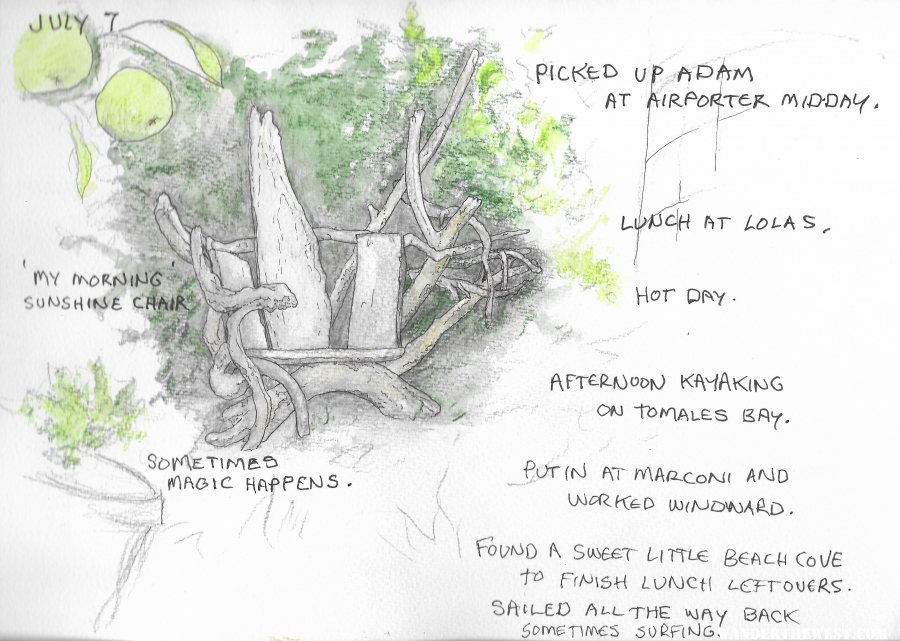 JULY 7
PICKED UP ADAM
AT AIRPORTER MIDDAY.
LUNCH AT LOLAS.
HOT DAY.
'MY MORNING'
SUNSHINE CHAIR
AFTERNOON KAYAKING
ON TOMALES BAY.
SOMETIMES
MAGIC HAPPENS.
PUT IN AT MARCONI AND
WORKED WINDWARD.
FOUND A SWEET LITTLE BEACH COVE
TO FINISH LUNCH LEFTOVERS.
SAILED ALL THE WAY BACK
SOMETIMES SURFING.